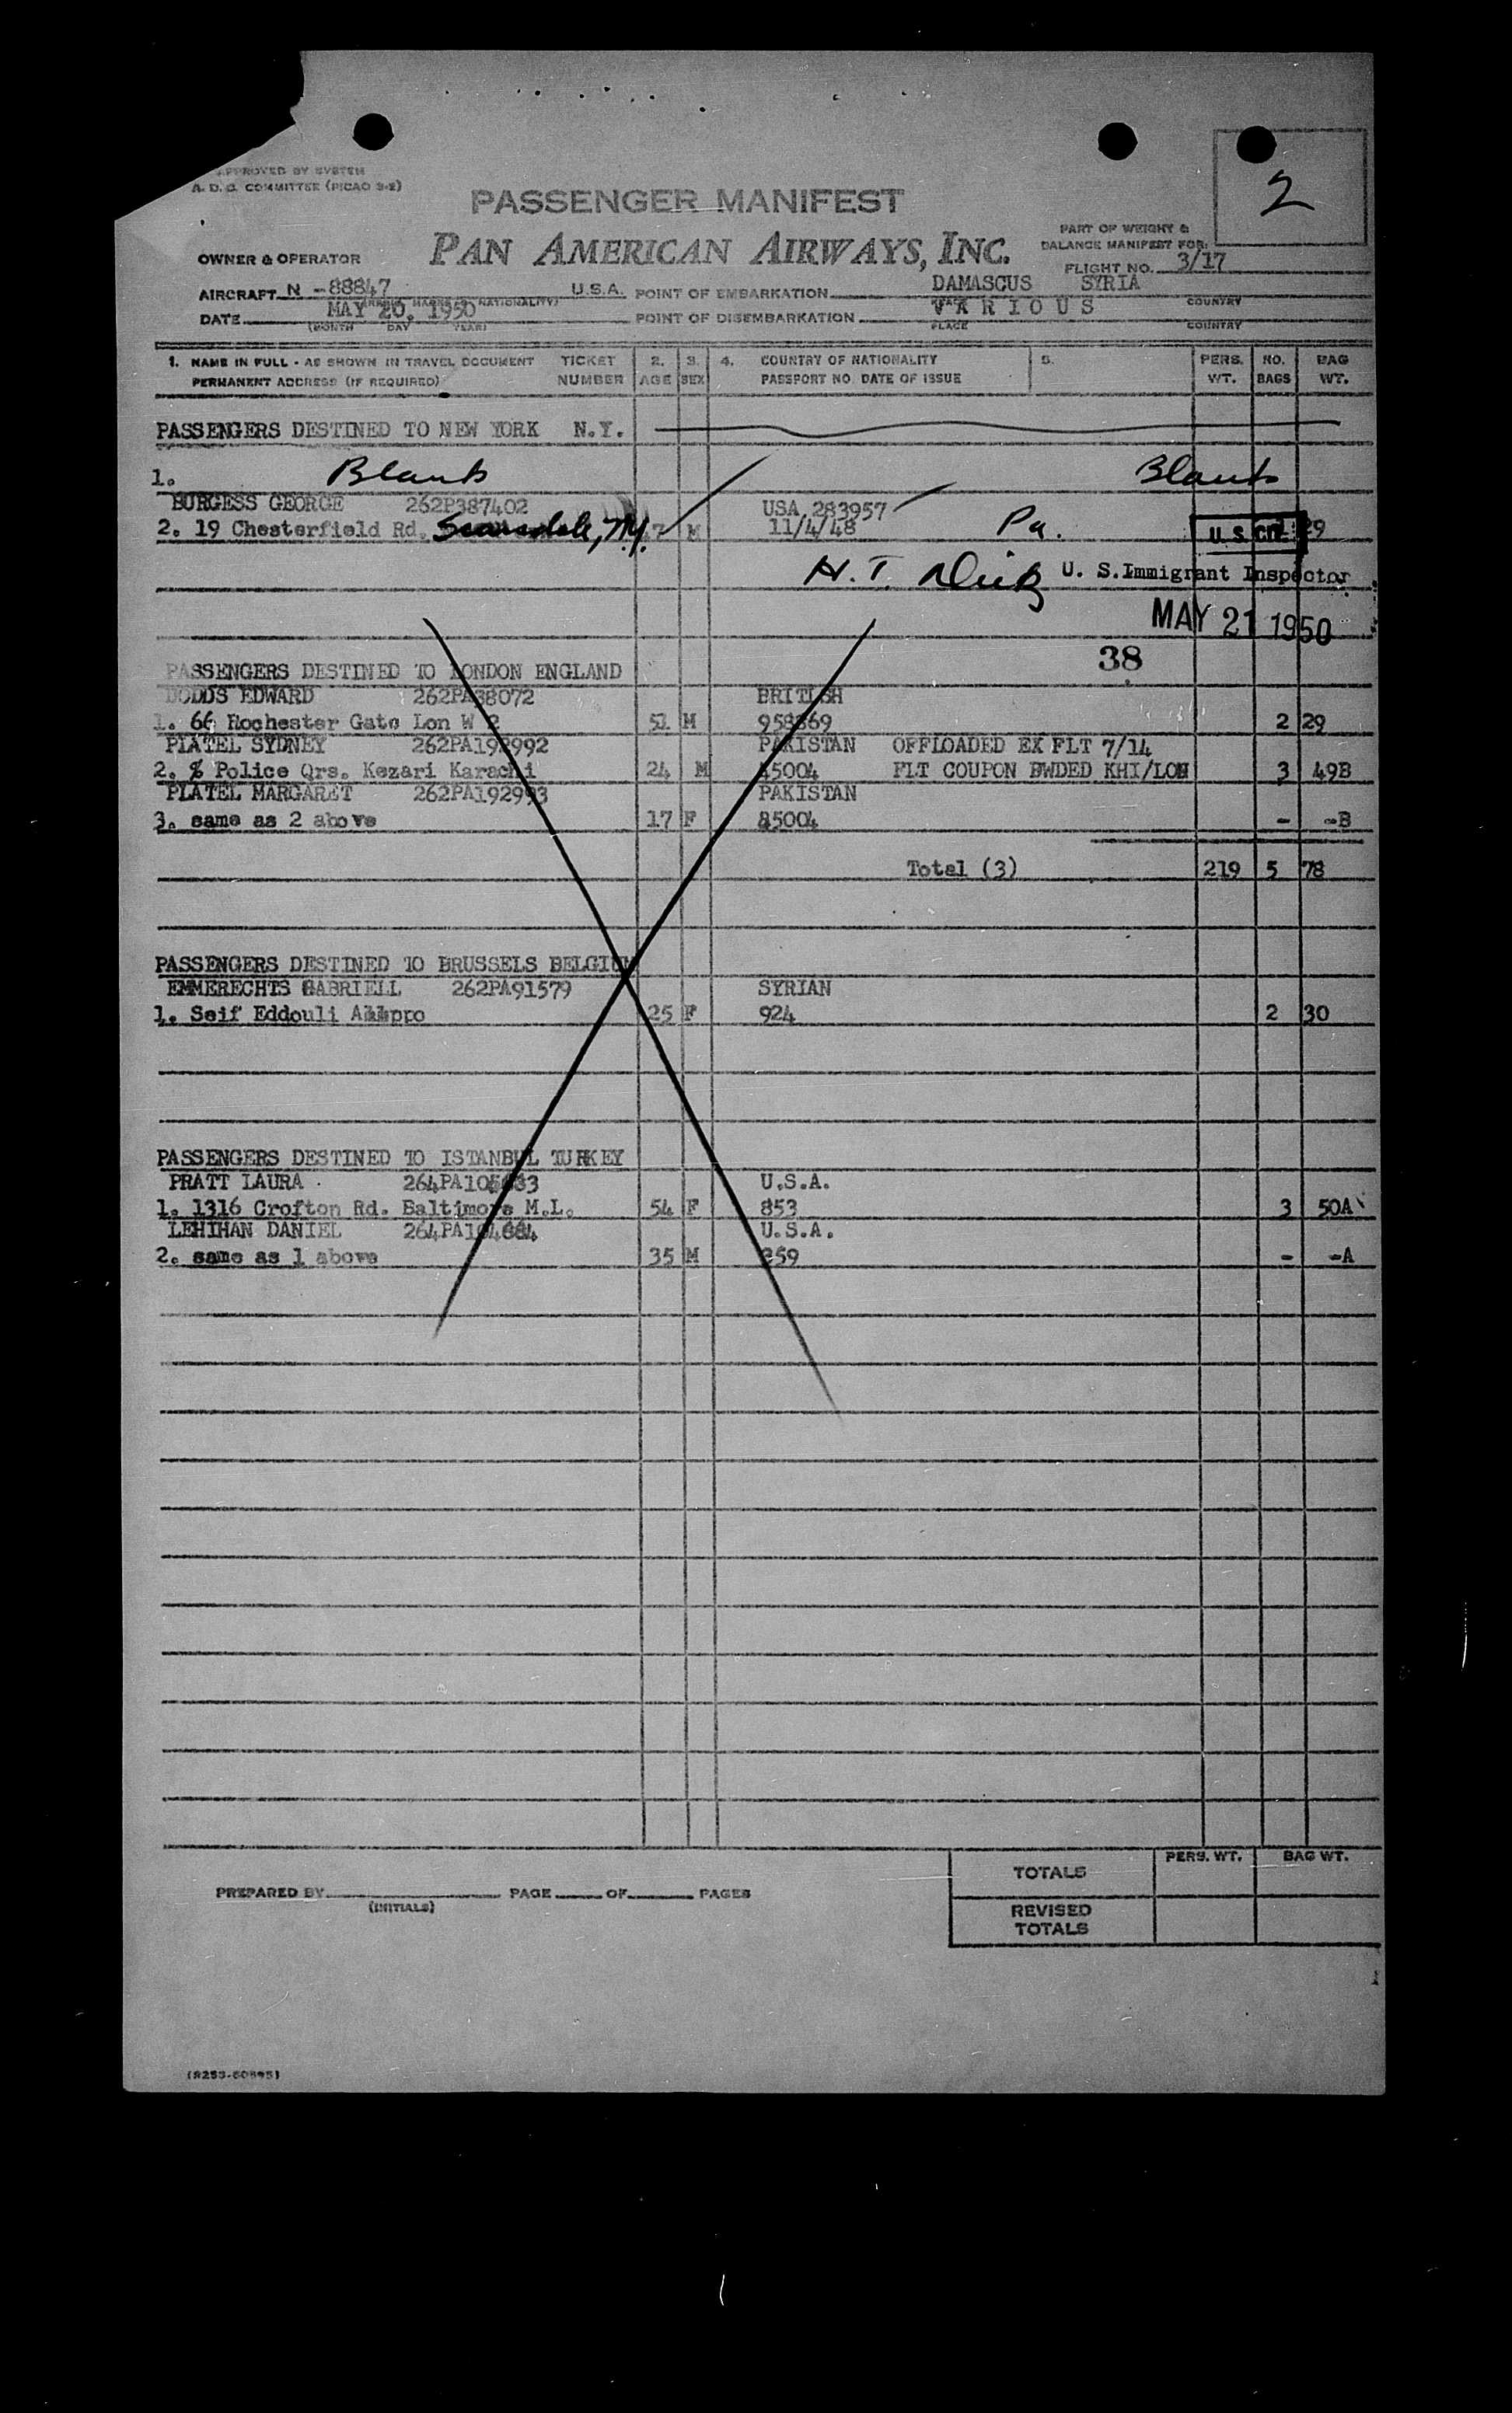 APPROVED BY SYSTEM
A. D. C. COMMITTEE (PICAO 9-2)
2
PASSENGER MANIFEST
PAN AMERICAN AIRWAYS, INC.
PART OF WEIGHT &
BALANCE MANIFEST FOR:
FLIGHT NO. 3/17
OWNER & OPERATOR
AIRCRAFT N -88847 U.S.A. POINT OF EMBARKATION DAMASCUS SYRIA
NATIONALITY) PLACE COUNTRY
DATE MAY 20, 1950 POINT OF DISEMBARKATION VARIOUS
(MONTH DAY YEAR) PLACE COUNTRY
1. NAME IN FULL - AS SHOWN IN TRAVEL DOCUMENT TICKET 2. 3. 4. COUNTRY OF NATIONALITY 5. PERS. NO. BAG
PERMANENT ADDRESS (IF REQUIRED) NUMBER AGE SEX PASSPORT NO. DATE OF ISSUE WT. BAGS WT.
PASSENGERS DESTINED TO NEW YORK N.Y.
1. Blank Blank
BURGESS GEORGE 262P387402 USA 283957
2. 19 Chesterfield Rd. Scarsdale, N.Y. M 11/4/48 Pa. U.S. CIT. 29
H. T. U. S. Immigrant Inspector
MAY 21 1950
38
PASSENGERS DESTINED TO LONDON ENGLAND
DODDS EDWARD 262PA38072 BRITISH
1. 66 Rochester Gate Lon W 2 51 M 958869 2 29
PLATEL SYDNEY 262PA192992 PAKISTAN OFFLOADED EX FLT 7/14
2. % Police Qrs. Kezari Karachi 24 M 85004 FLT COUPON BWDED KHI/LON 3 49B
PLATEL MARGARET 262PA192993 PAKISTAN
3. same as 2 above 17 F 85004 - -B
Total (3) 219 5 78
PASSENGERS DESTINED TO BRUSSELS BELGIUM
EMMERECHTS GABRIELL 262PA91579 SYRIAN
1. Seif Eddouli 25 F 924 2 30
PASSENGERS DESTINED TO ISTANBUL TURKEY
PRATT LAURA 264PA U.S.A.
1. 1316 Crofton Rd. Baltimore M.L. 54 F 853 3 50A
LEHIHAN DANIEL U.S.A.
2. same as 1 above 35 M 259 - -A
TOTALS PERS. WT. BAG WT.
PREPARED BY PAGE OF PAGES
(INITIALS)
REVISED
TOTALS